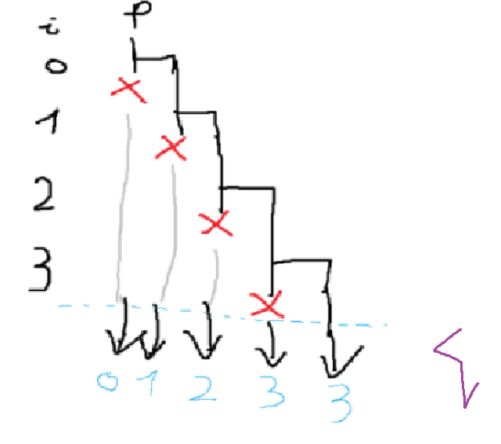 i p
0
1
2
3
0 1 2 3 3